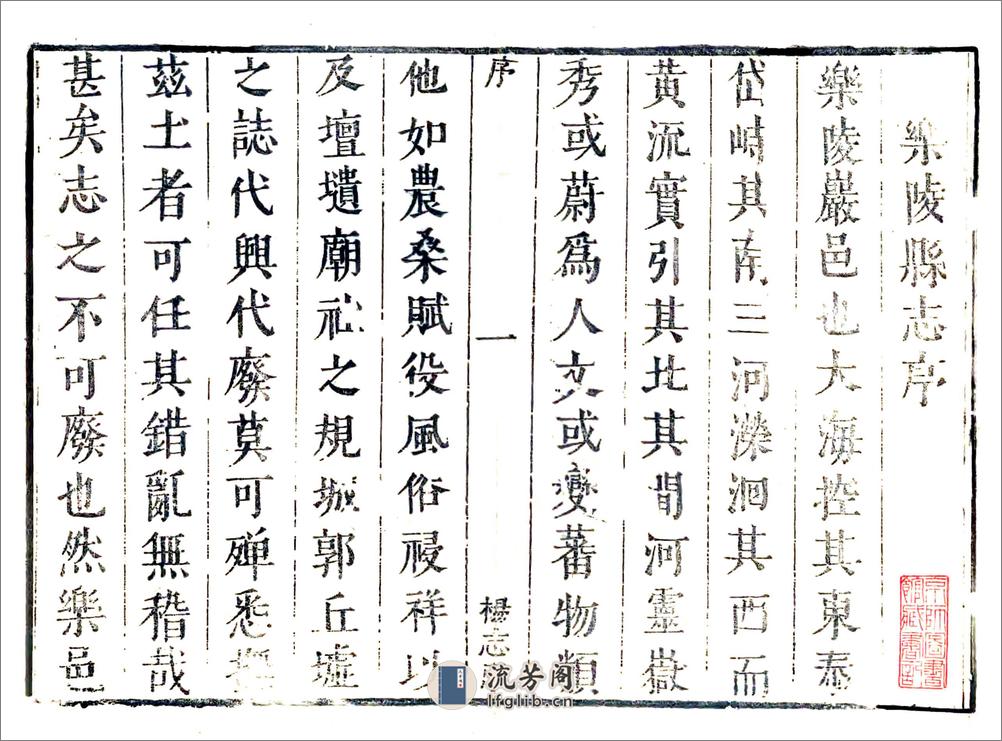 樂陵縣志序
樂陵巖邑也大海控其東泰
岱峙其南三河濚洄其西而
黃流實引其北其間河靈嶽
秀或蔚爲人文或變蕃物類
序
一
楊志
他如農桑賦役風俗祲祥以
及壇壝廟祀之規城郭丘墟
之誌代興代廢莫可殫悉
茲土者可任其錯亂無稽哉
甚矣志之不可廢也然樂邑
京師圖書
館藏書
流芳阁
lfglib.cn